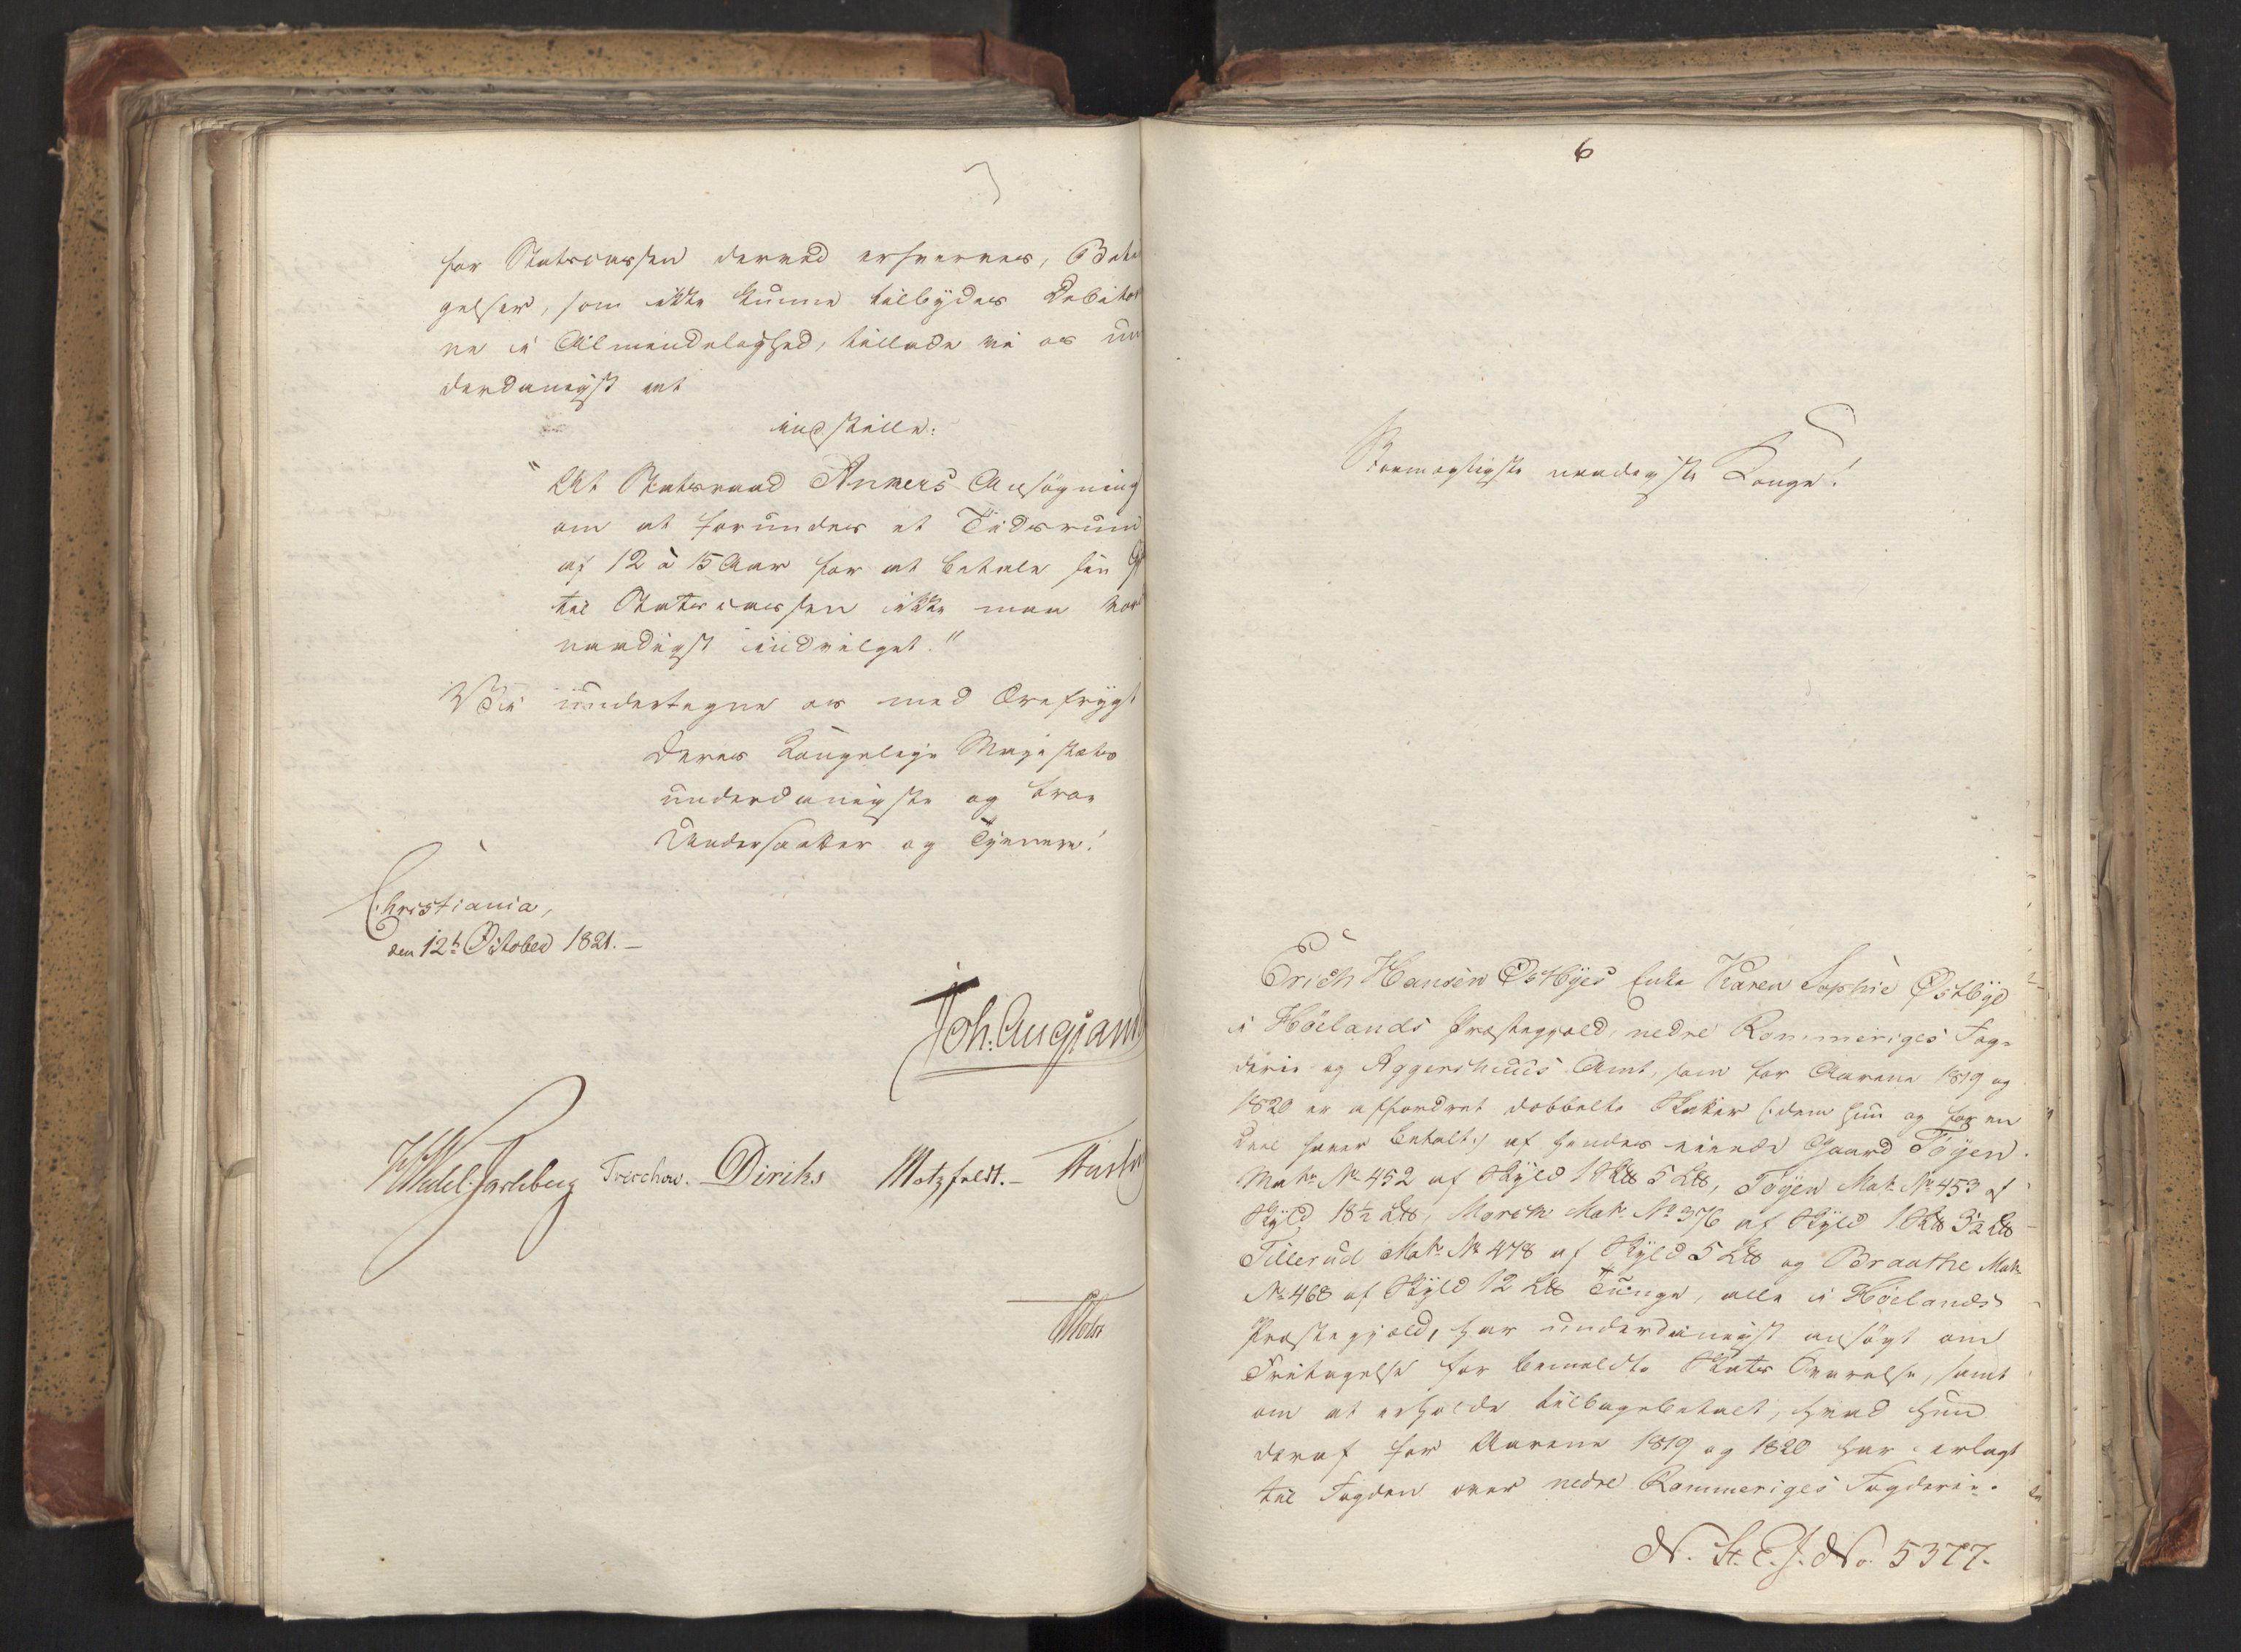 for Statscassen derved erhverves, Beta
gelser, som ikke kunne tilbydes Debito
ne i Almindelighed, tillade vi os un
derdanigst at
indstille:
"At Statsraad Ankers Ansøgning
om at forundes et Tidsrum
af 12 à 15 Aar for at betale sin
til Statscassen ikke maa vor
naadigst indvilget."
Vi undertegne os med Ærefrygt
Deres Kongelige Majestæts
underdanigste og troe
Undersaatter og Tjenere!
Christiania,
den 12t October 1821.-
Joh: Aug: Sand
HWedel-Jarlsberg Treschow. Diriks Motzfeldt.-
Holst
6
Stormægtigste naadigste Konge!
Erich Hansen Østbyes Enke Karen Sophie Østbye
i Höelands Præstegjæld, nedre Rommeriges Fog-
derie og Aggershuus Amt, som for Aarene 1819 og
1820 er affordret dobbelte Skatter (:dem hun og for en
Deel haver betalt:) af hendes eiende Gaard Töyen.
Matr: No 452 af Skyld 1 Sktb 5 Ltb, Töyen Matr: No 453 af
Skyld 18½ Ltb, Matr: No 376 af Skyld 1 Sktb 3½ Ltb
Tillerud Matr: No 478 af Skyld 5 Ltb og Braathe Matr:
No 468 af Skyld 12 Ltb Tunge, alle i Höelands
Præstegjæld, har underdanigst ansøgt om
Fritagelse for bemeldte Skatts Svarelse, samt
om at erholde tilbagebetalt, hvad hun
deraf for Aarene 1819 og 1820 har erlagt
til Fogden over nedre Rommeriges Fogderie.
N. St. E. J. No. 5377.